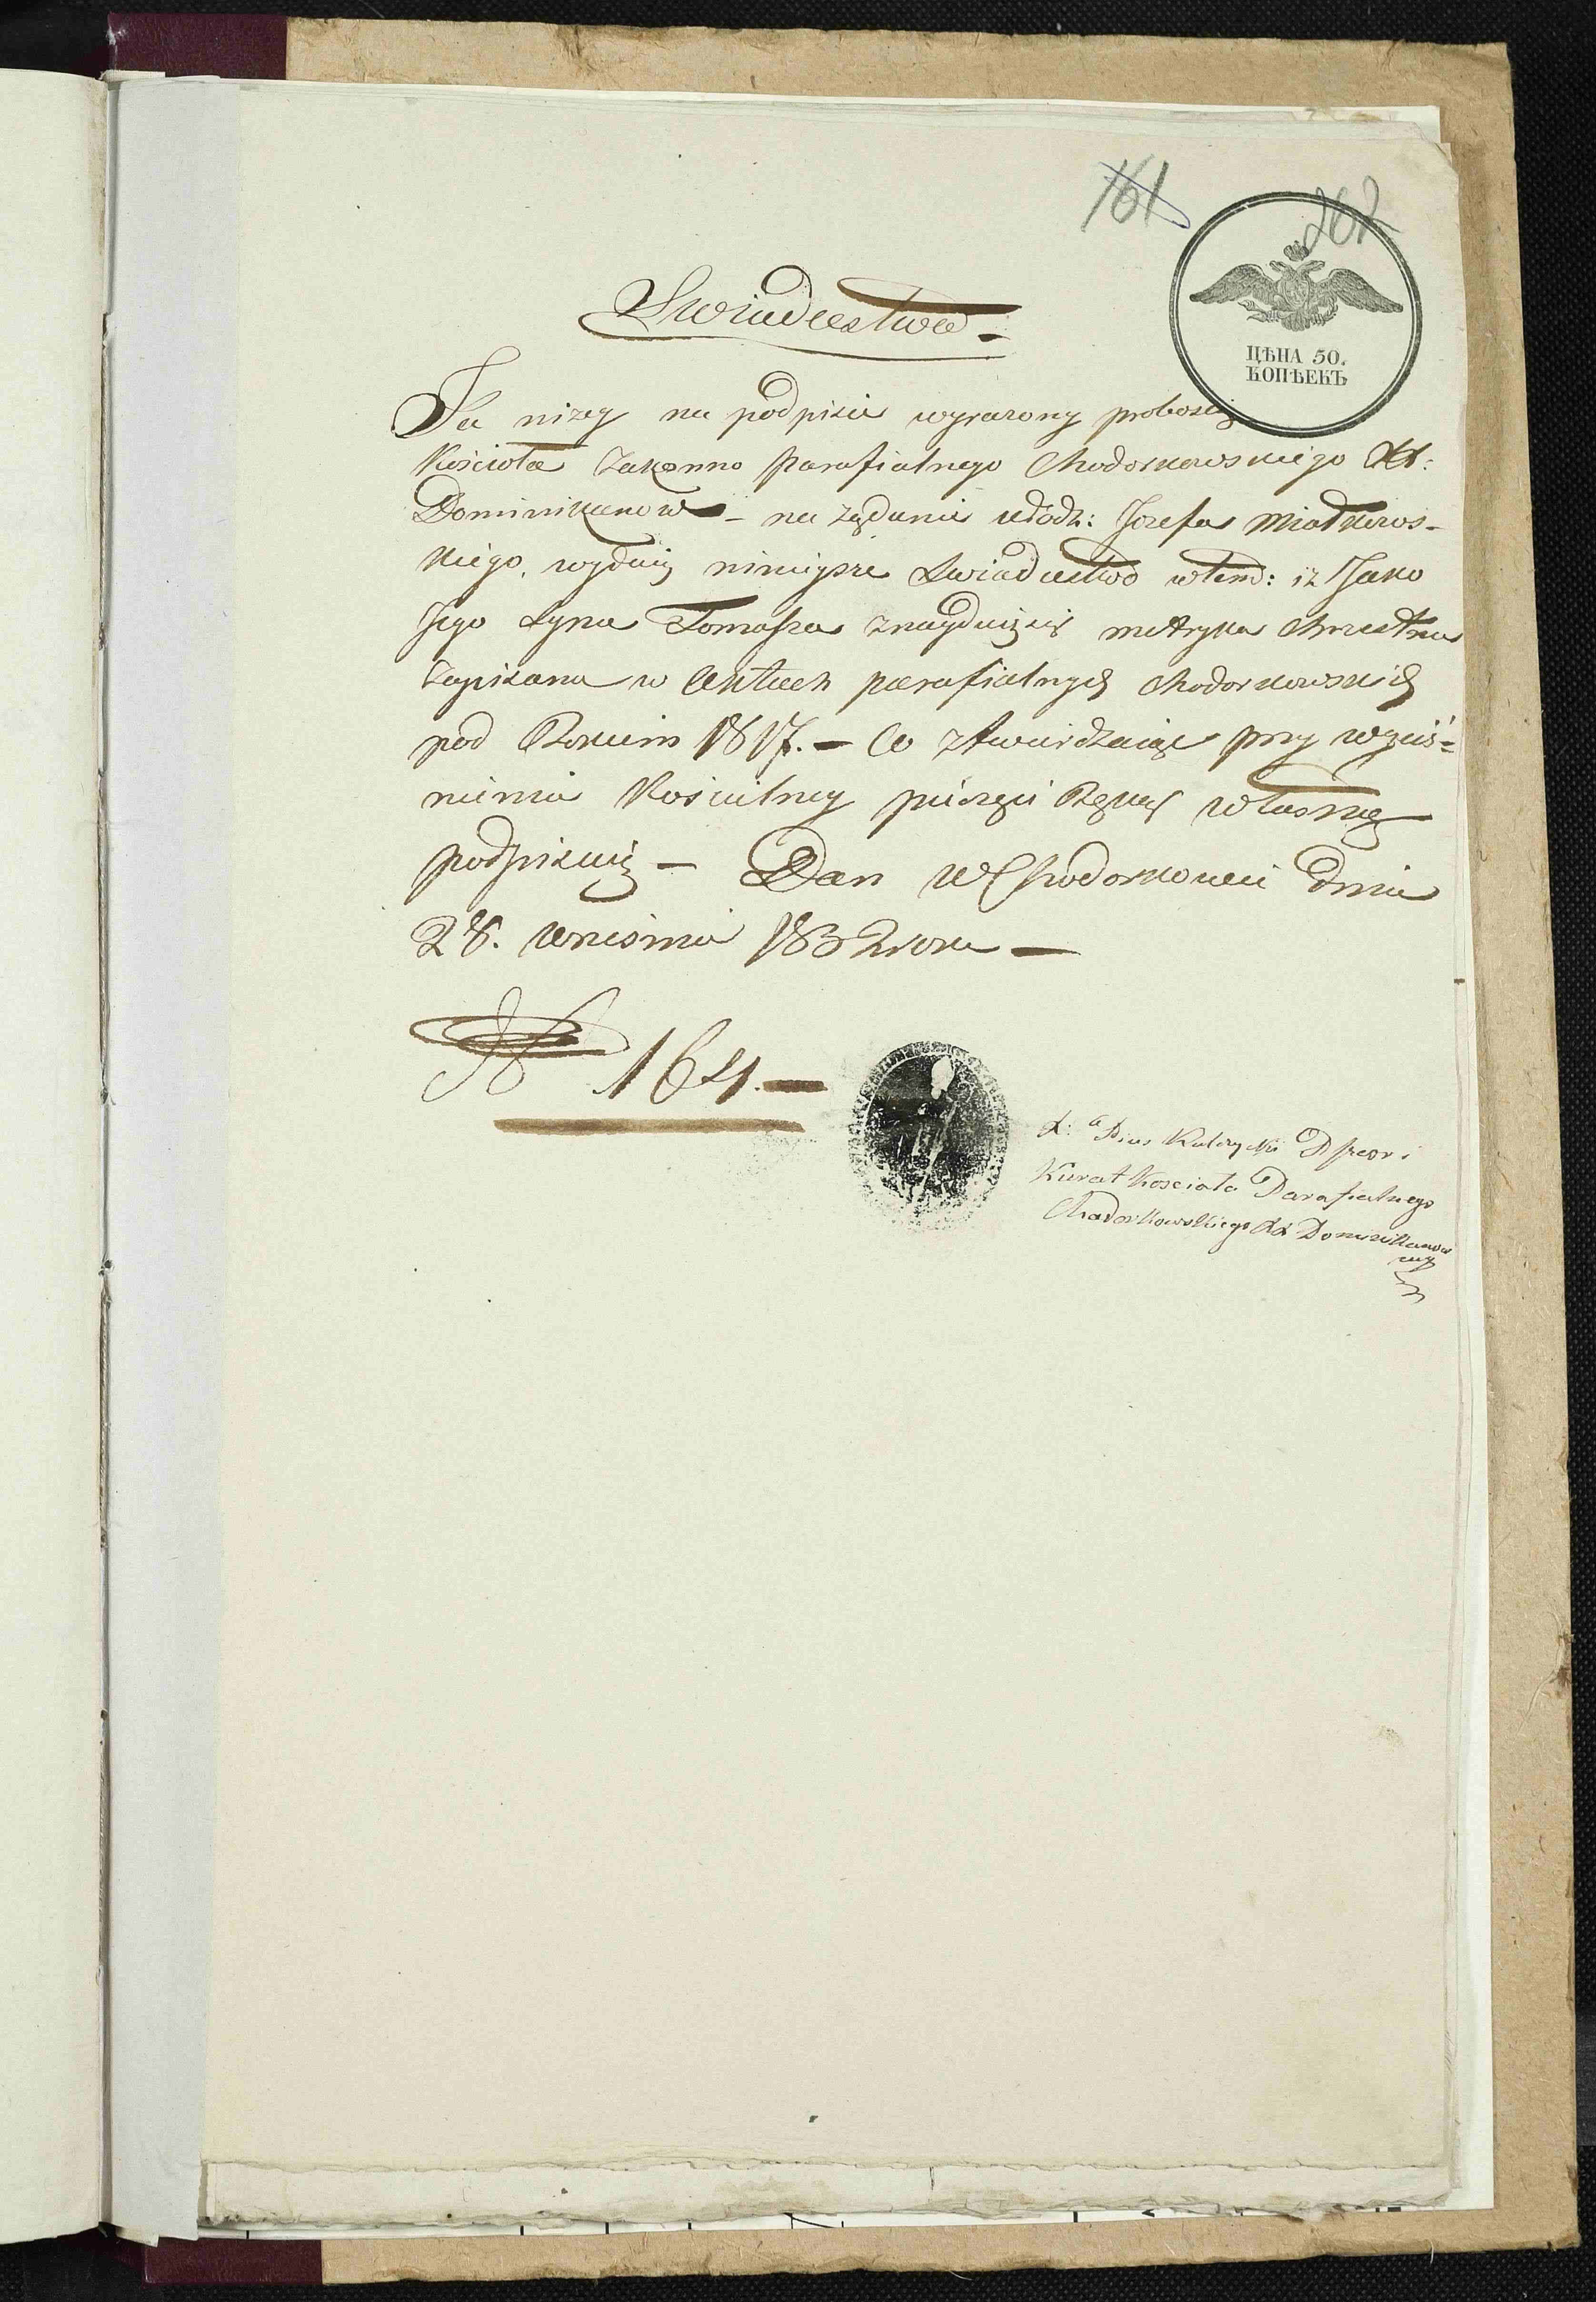 161
262
ЦѢНА 50.
КОПѢЕКЪ
Swiadectwo.
Ja nizey na podpisie wyrazony proboszcz
Kościoła Zakonno parafialnego Chodorkowskiego XX:
Dominikanow – na żądanie Urodz: Jozefa Miatkows-
kiego, wydaię ninieysze Swiadectwo w tem: iz Jako
Jego Syna Tomasza znayduięsię metryka Chrzestna
Zapisana w Aktach parafialnych Chodorkowskich
pod Rokiem 1817. – Co ztwierdzaiąc przy wyciś=
nieniu Koscielney pieczęci Ręką własną
podpisuię – Dan w Chodorkowie dnia
28. wrzesnia 1832 roku –
N 164. –
X: Pius Kulczycki P przeor i
Kurat Kosciola Parafialnego
Chodorkowskiego XX Dominikanow